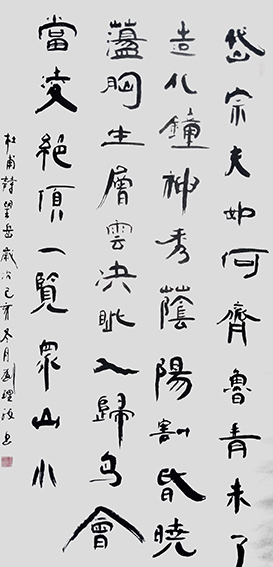 岱宗夫如何齊魯青未了
造化鐘神秀蔭陽割昏曉
蘯胸生層雲決眦入歸鸟會
當凌絕頂一覽眾山小
杜甫詩望岳歲次己亥冬月劉理